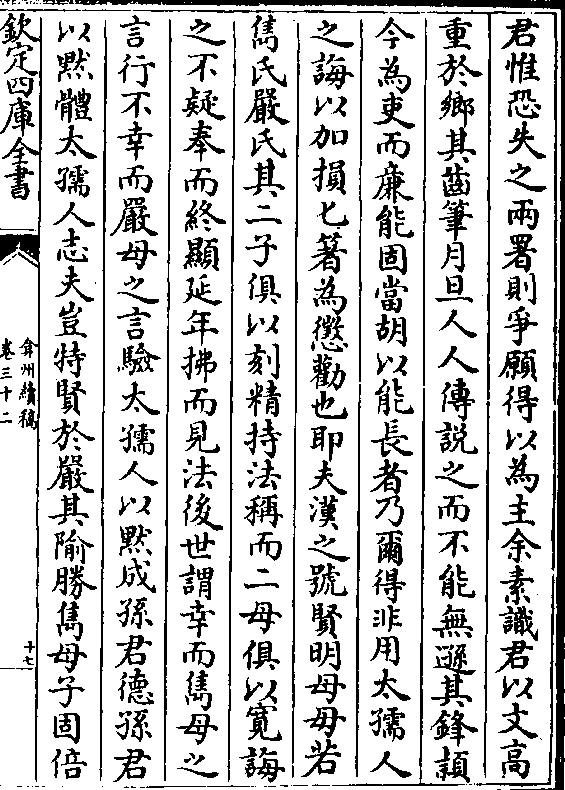 君惟恐失之兩署則爭願得以為主余素識君以文高
重於鄉其齒筆月旦人人傳說之而不能無遜其鋒頴
今為吏而廉能固當胡以能長者乃爾得非用太孺人
之誨以加損匕箸為懲勸也耶夫漢之號賢明母毋若
雋氏嚴氏其二子俱以刻精持法稱而二母俱以寬誨
之不疑奉而終顯延年拂而見法後世謂幸而雋母之
言行不幸而嚴母之言驗太孺人以黙成孫君德孫君
以黙體太孺人志夫豈特賢於嚴其隃勝雋母子固倍
欽定四庫全書
弇州續稿
卷三十二
十七